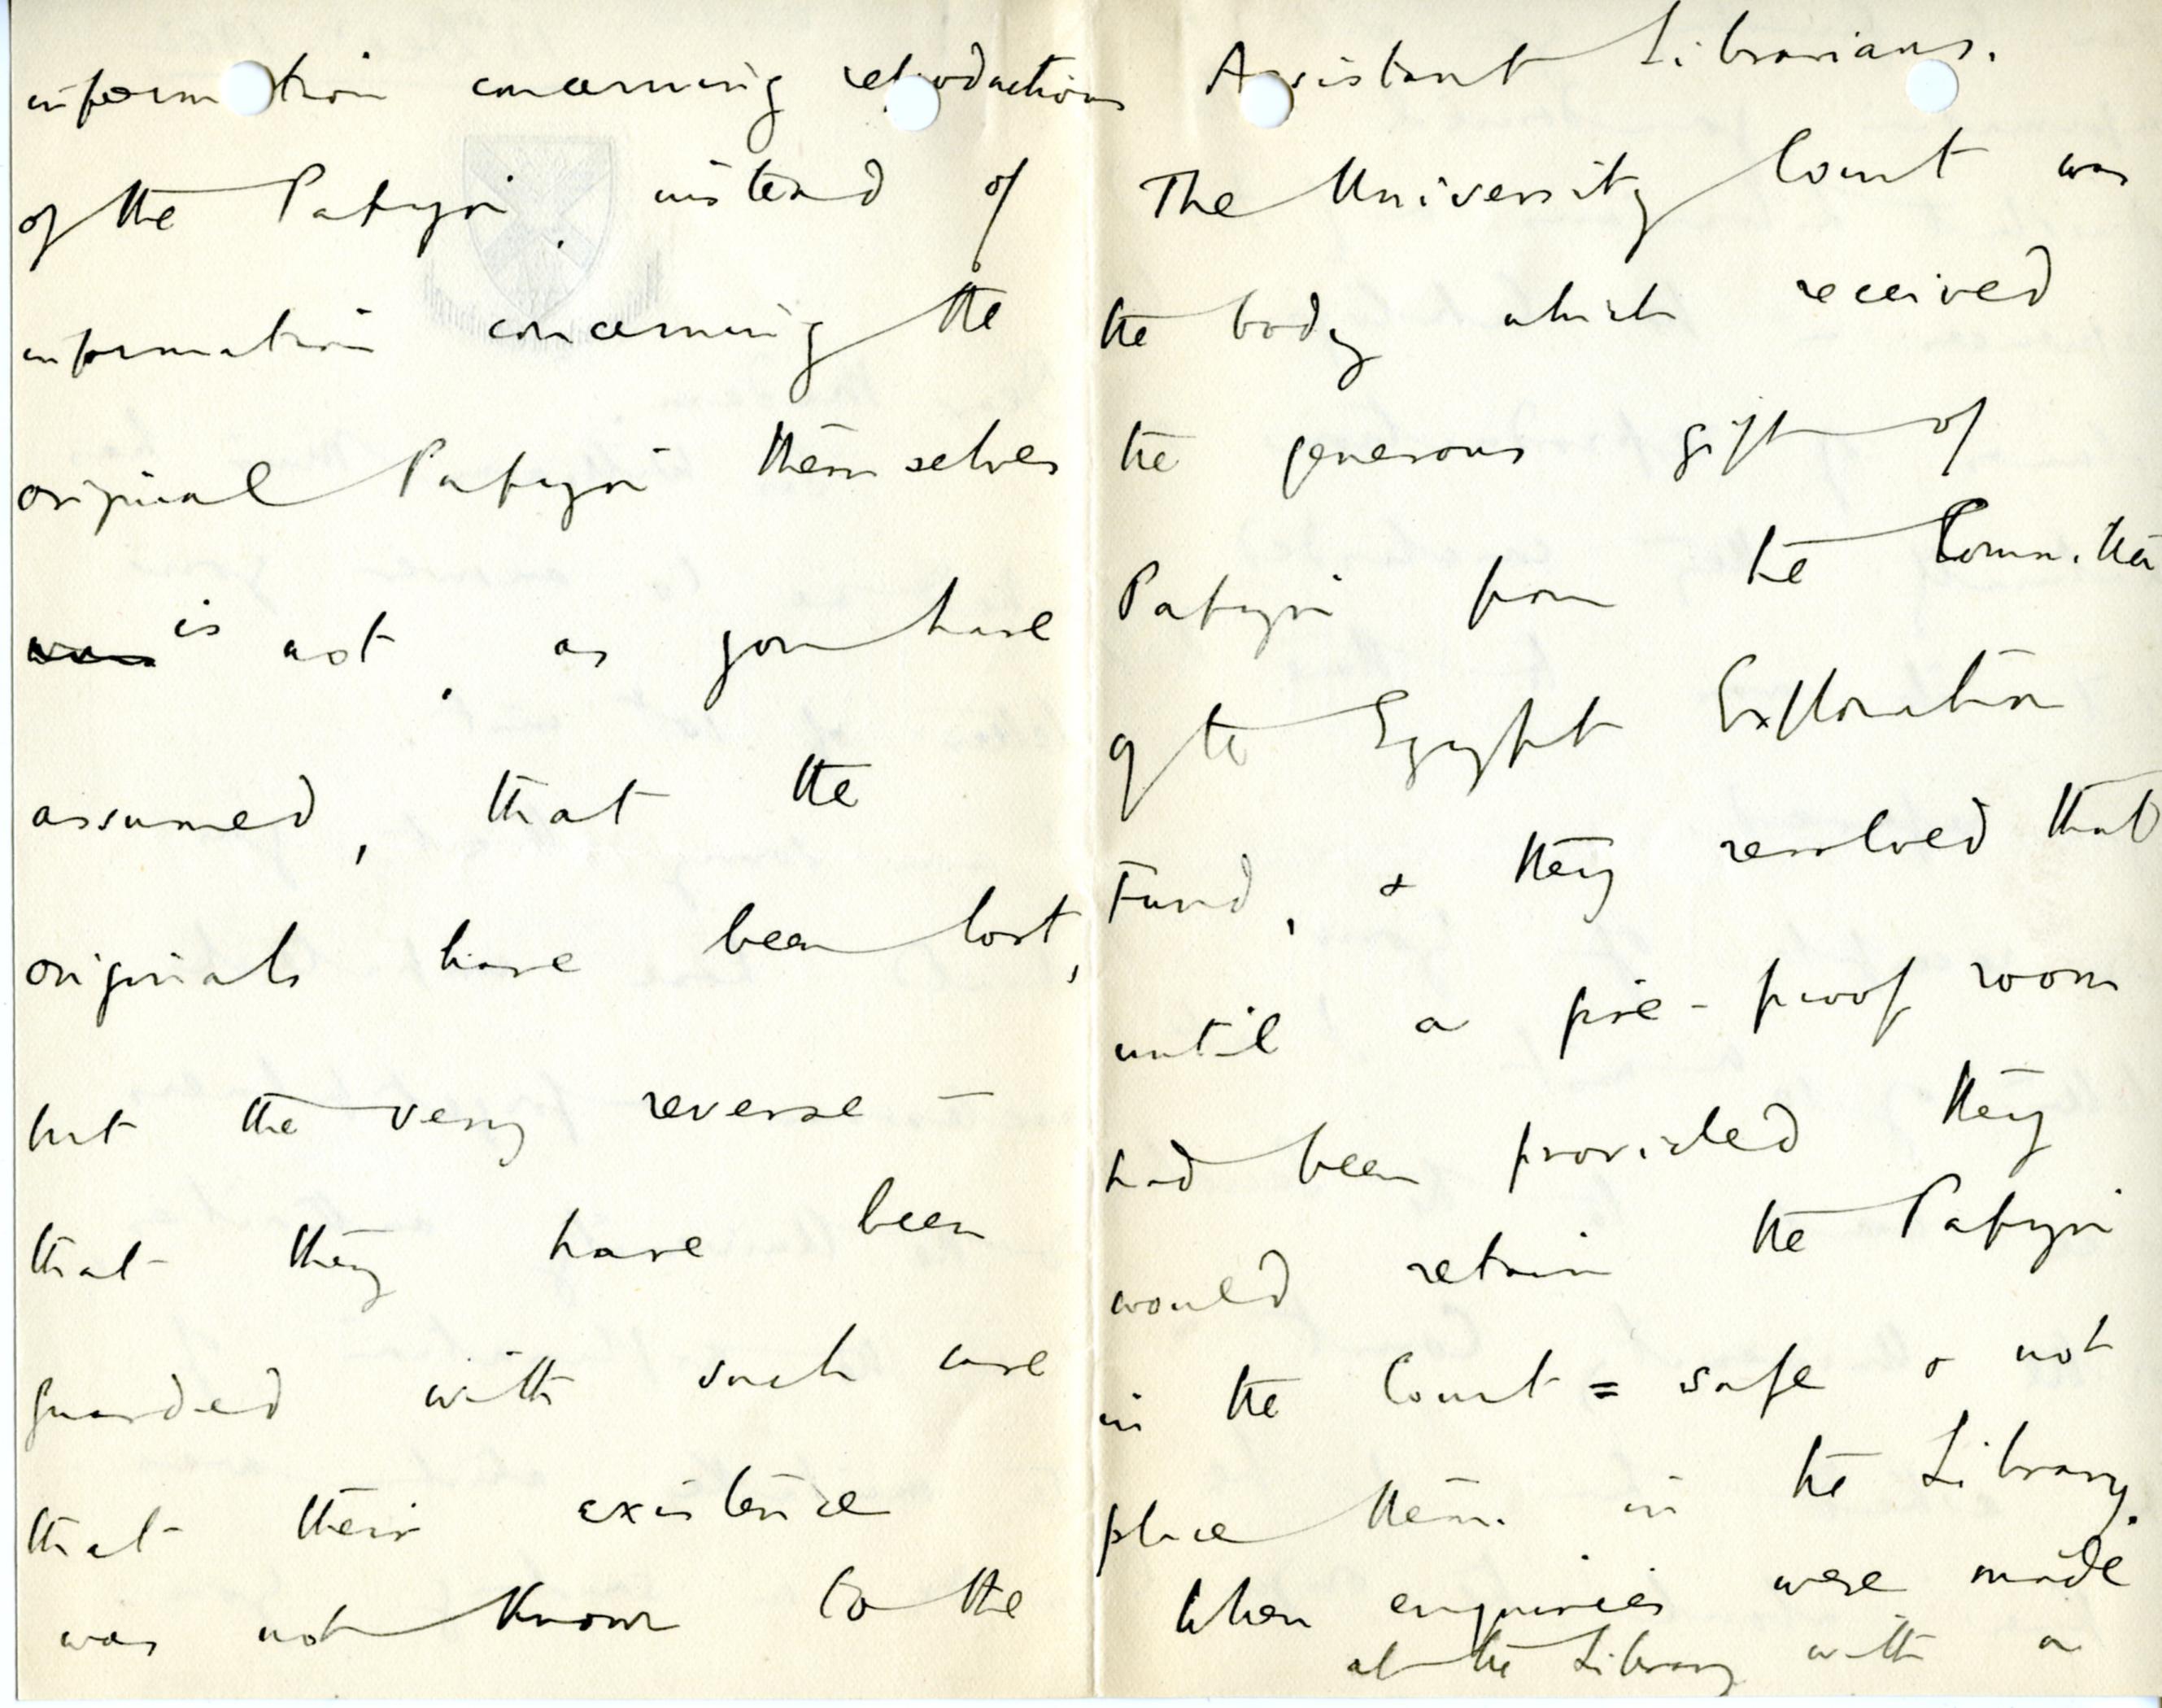 information concerning reproductions
of the Papyri, instead of
information concerning the
original Papyri themselves
is not, as you have
assumed, that the
originals have been lost,
but the very reverse —
that they have been
guarded with such care
that their existence
was not known to the
Assistant Librarians.
The University Court was
the body which received
the generous gift of
Papyri from the Committee
of the Egypt Exploration
Fund, & they resolved that
until a fire-proof room
had been provided they
would retain the Papyri
in the Court = safe & not
place them in the Library.
When enquiries were made
at the Library with a